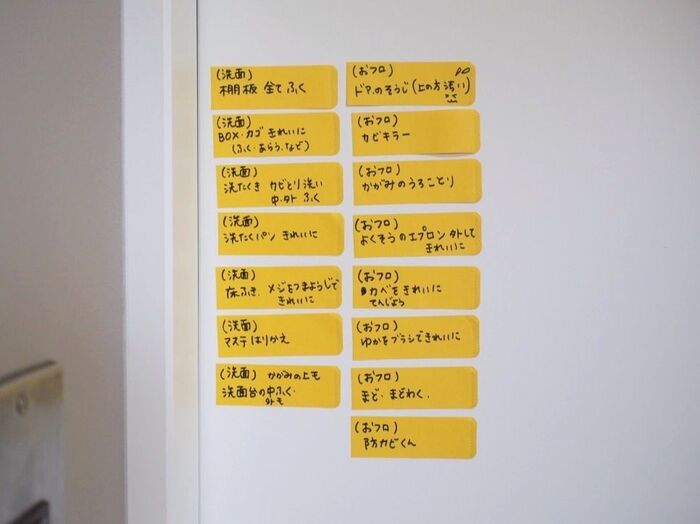 (洗面)
棚板 全て ふく
(洗面)
BOX・カゴ きれいに
(ふく・あらう、など)
(洗面)
洗たくき カビとり洗い
中・外 ふく
(洗面)
洗たくパン きれいに
(洗面)
床ふき、メジをつまようじで
きれいに
(洗面)
マステはりかえ
(洗面) かがみの上も
洗面台の中ふく・
外も
(おフロ)
ドアのそうじ(上の方汚い)
(おフロ)
カビキラー
(おフロ)
かがみのうろことり
(おフロ)
よくそうのエプロン外して
きれいに
(おフロ)
カベをきれいに
てんじょう
(おフロ)
ゆかをブラシできれいに
(おフロ)
まど・まどわく、
(おフロ)
防カビくん